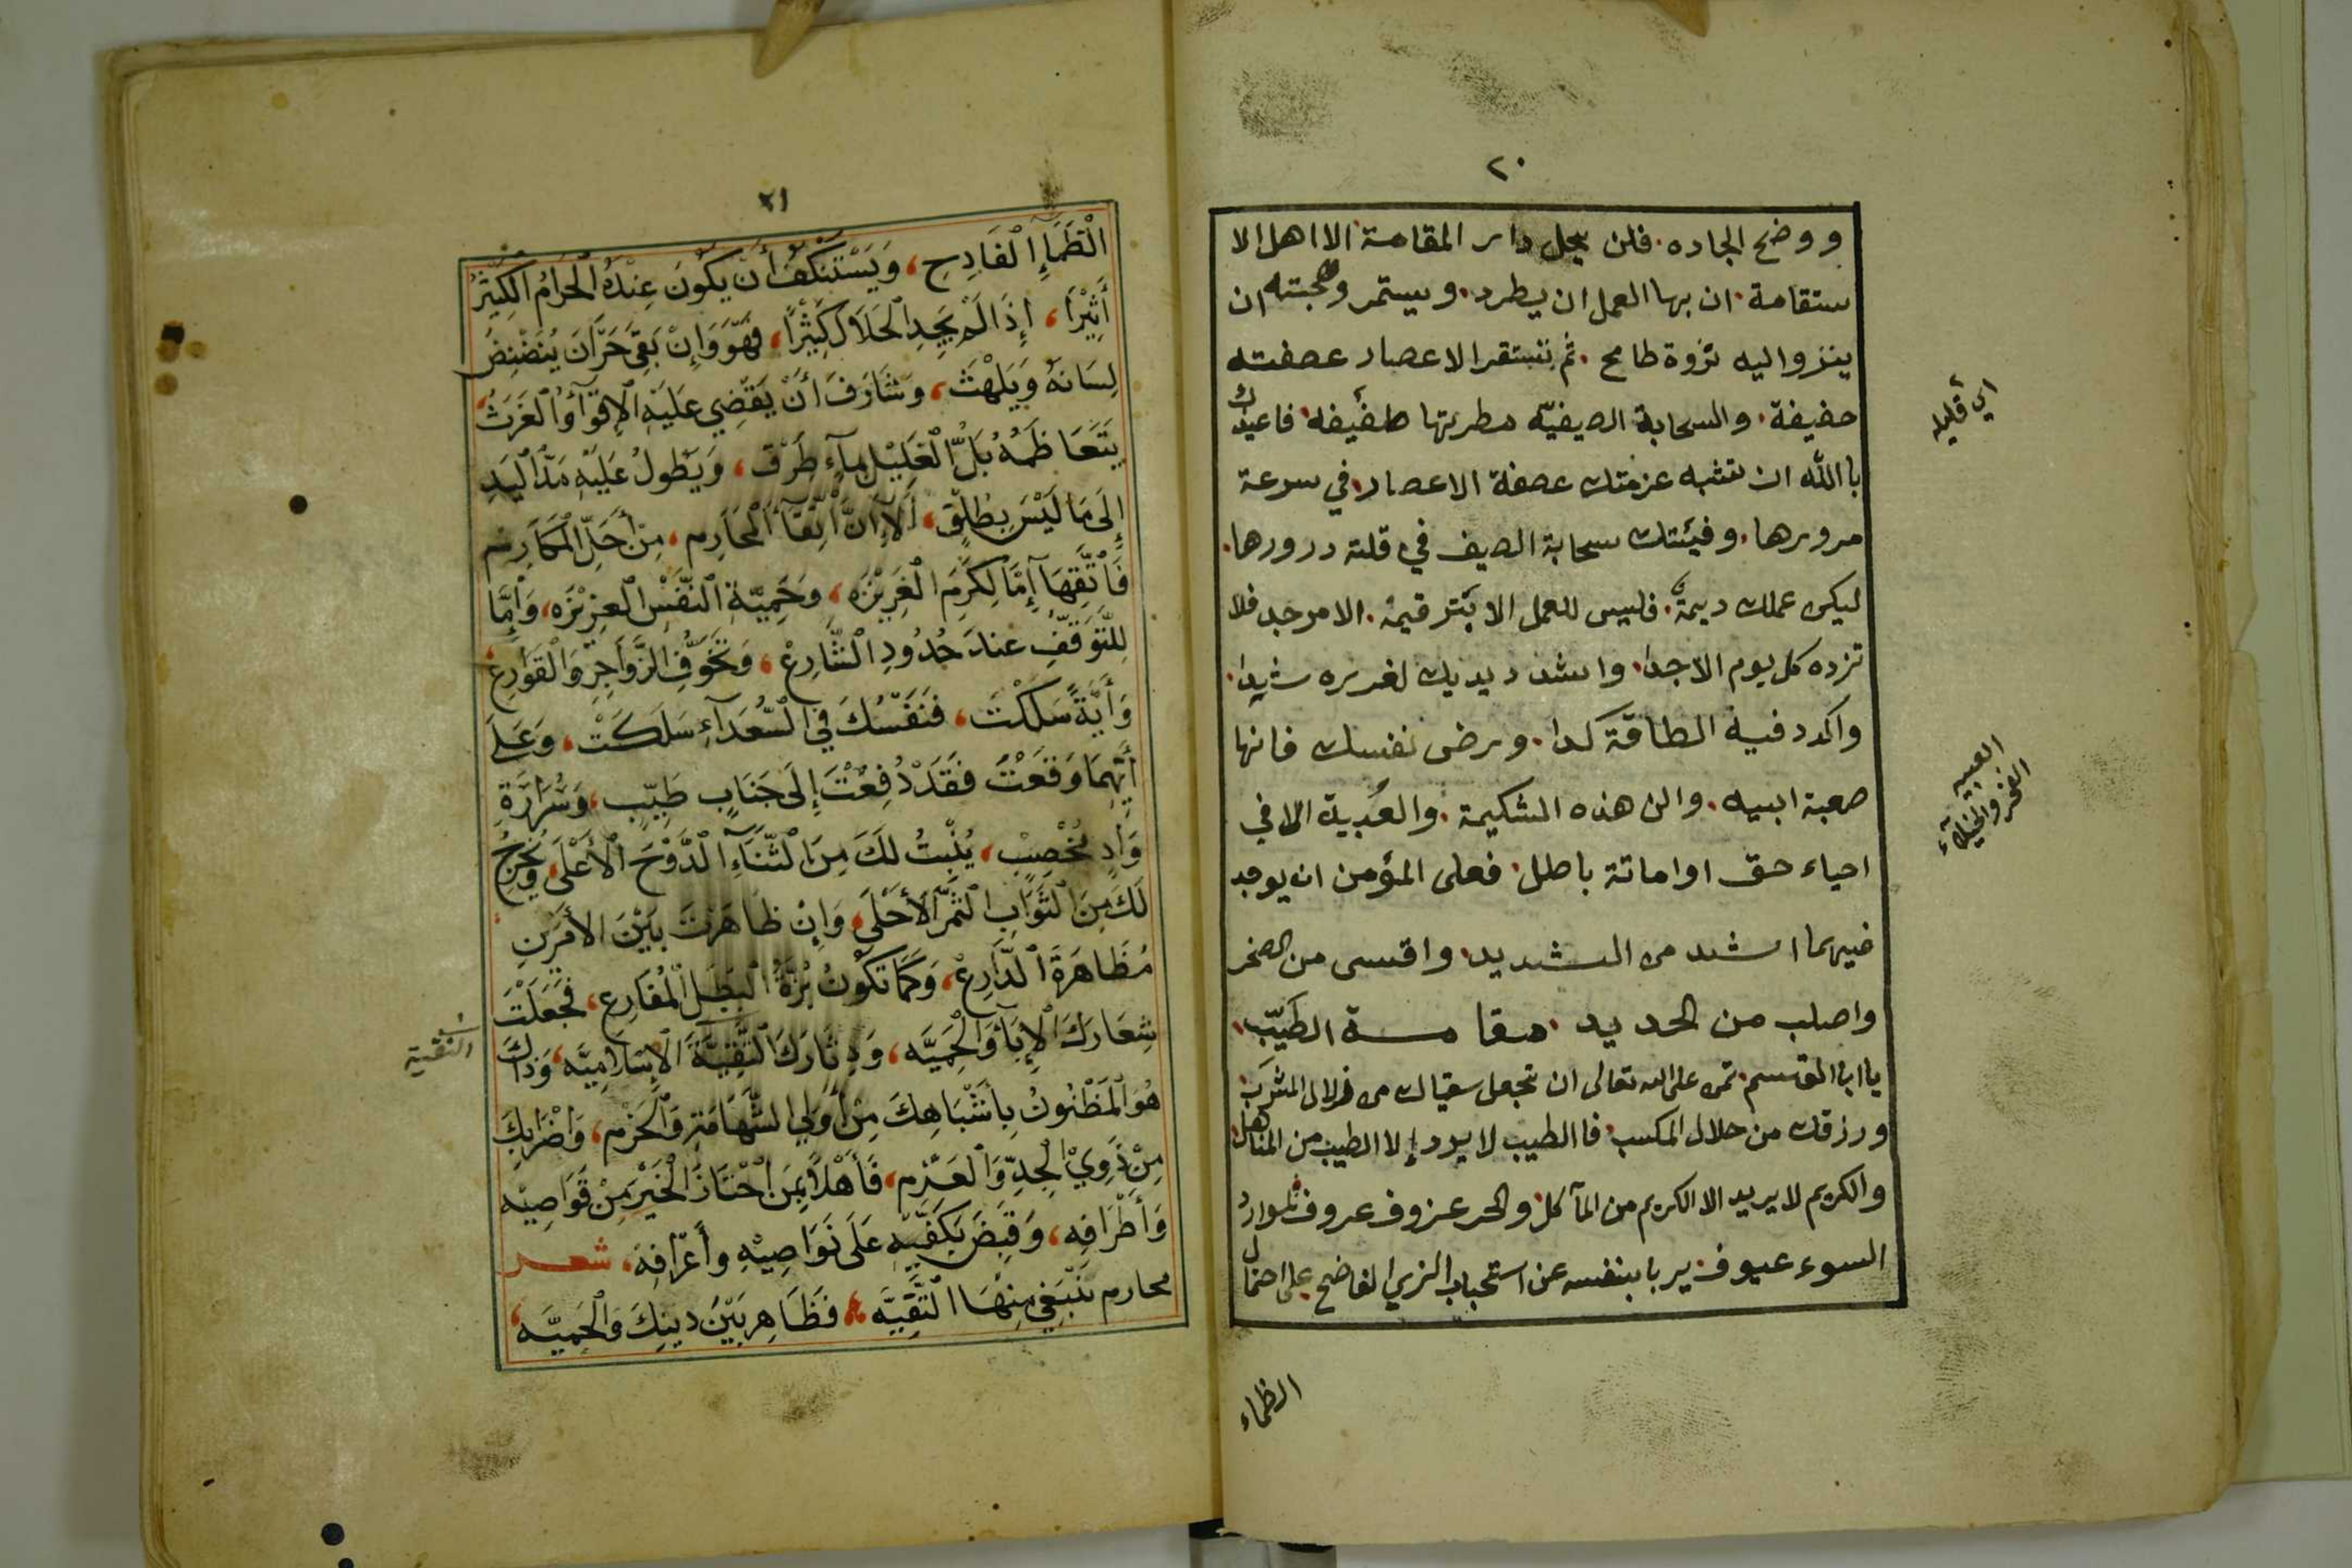 ٢٠
ووضح الجاده. فلن يحل دار المقامة الا اهل الا
ستقامة. ان بها العمل ان يطرد. ويستمر ومحجبته ان
ينزواليه نزوة طامح. ثم نفبتقر الاعصار عصفته
خفيفة. والسحابة الصيفيّه مطرتها طفيفه. فاعيذك
با الله ان تشبه عزمتك عصفة الاعصار في سرعة
مرورها. وفيئتك سحابة الصيف في قلتة درورها.
ليكن عملك ديمةً. فليس للعمل الابتر قيمة. الامر جد فلا
تزده كل يوم الاجدا. واشدد يديك لغرزه شدا.
واكدد فيه الطاقة كدا. ورض نفسك فانها
صعبة ابيه. والن هذه الشكيمة. والعُبية الا في
احياء حق او اماتة باطل. فعلى المؤمن ان يوجد
فيهما اشد من الشديد. واقسى من الصخر
واصلب من الحديد. مقامة الطيّب.
يا ابا القسم. تمن على الله تعالى ان تجعل سقياك من زلال المشرب.
ورزقك من حلال المكسب. فا الطيب لا يرد إلا الطيب من المناهل
والكريم لا يريد الا الكريم من المآكل. والحر عزوف عروف لموارد
السوء عيوف. يربا بنفسه عن استحباب الزي الفاضح على احتمال
الظماء
اي قليله
العبيه
الفخر والخيلاء
٢١
الْظَمَاءِ الْفَادِحِ، وَيَسْتَنْكِفُ أَنْ يَكُونَ عِنْدَهُ الْحَرَامُ الْكَثِيْرُ
أَثِيْرًا، إِذَا لَمْ يَجِدِ الْحَلَالَ كَثِيْرًا، فَهُوَ وَإِنْ بَقِيَ حَرَّانَ يُنَضْنِضُ
لِسَانَهُ وَيَلْهَثُ، وَشَارَفَ أَنْ يَقْضِي عَلَيْهِ الْإِقْوَآءُ وَالْغَرَثُ،
يَتَعَاظَمُهُ بَلُّ الْغَلِيْلِ بِمَآءٍ طَرْقٍ، وَيَطُولُ عَلَيْهِ مَدُّ الْيَدِ
إِلَى مَا لَيْسَ بِطُلْقٍ، أَلَا إِنَّ اتِّقَآءَ الْمَحَارِمِ، مِنْ أَجَلِّ الْمَكَارِمِ
فَاتَّقِهَا إِمَّا لِكَرَمِ الْغَرِيْزَهِ، وَحَمِيَّةِ النَّفْسِ الْعَزِيْزَه، وَإِمَّا
لِلتَّوَقُّفِ عِنْدَ حُدُودِ الشَّارِعْ، وَتَخَوُّفِ الزَّوَاجِرِ وَالْقَوَارِعْ،
وَأَيَّةً سَلَكْتَ، فَنَفْسُكَ فِي السُّعَدَآءِ سَلَكَتْ، وَعَلَى
أَيِّهِمَا وَقَعْتَ فَقَدْ دُفِعْتَ إِلَى جَنَابٍ طَيِّبٍ، وَشَرَارَةِ
وَادٍ مُخْصِبٍ، يُنْبِتُ لَكَ مِنَ الثَّنَآءِ الدَّوْحَ الْأَعْلَى، وَيُخْرِجُ
لَكَ مِنَ الثَّوَابِ الثَّمَرَ الْأَحْلَى، وَإِنْ ظَاهَرْتَ بَيْنَ الْأَمْرَيْنِ
مُظَاهَرَةَ الدَّارِعْ، وَكَمَا تَكُونُ بِزَّةُ الْبَطَلِ الْمُقَارِعِ، فَجَعَلْتَ
شِعَارَكَ الْإِبَآءَ وَالْحَمِيَّه، وَدِثَارَكَ التَّقِيَّةَ الْإِسْلَامِيَّه، وَذَاكَ
هُوَ الْمَظْنُونُ بِأَشْبَاهِكَ مِنْ أُولِي الشَّهَامَةِ وَالْحَزْمِ، وَاضْرَابِكَ
مِنْ ذَوِي الْجِدِّ وَالْعَزْمِ، فَأَهْلًا بِمَنِ احْتَازَ الْخَيْرَ مِنْ قَوَاصِيْهِ
وَأَطْرَافِهِ، وَقَبَضَ بِكَفَّيْهِ عَلَى نَوَاصِيْهِ وَأَعْرَافِهِ، شعر
محارم نَبْتَغِي مِنْهَا التَّقِيَّه، فَظَاهِرْ بَيْنَ دِينِكَ وَالْحَمِيَّه
التقية